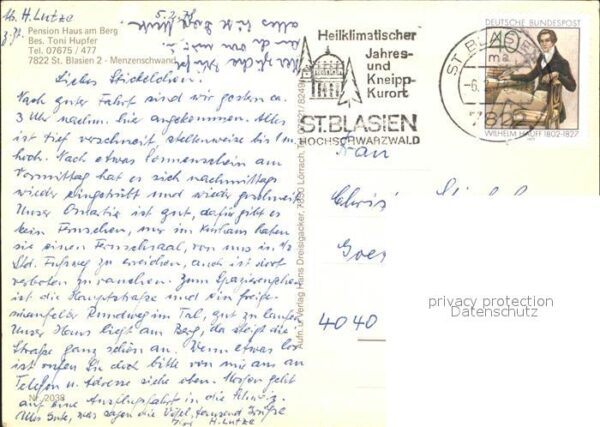 Abs. H. Lutze
z. Zt.
Pension Haus am Berg
Bes. Toni Hupfer
Tel. 07675 / 477
7822 St. Blasien 2 - Menzenschwand
5.2.78
alles Gute
Liebes Stickelchen!
Nach guter Fahrt sind wir gestern ca.
3 Uhr nachm. hier angekommen. Alles
ist tief verschneit, stellenweise bis 1 m
hoch. Nach etwas Sonnenschein am
Vormittag hat es sich nachmittags
wieder eingetrübt und wieder geschneit.
Unser Quartier ist gut, dafür gibt es
kein Fernsehen, nur im Kurhaus haben
sie einen Fernsehsaal, von uns in 1/2
Std. Fußweg zu erreichen, auch ist dort
verboten zu rauchen. Zum Spazierengehen
ist die Hauptstraße und ein frei
Rundweg im Tal, gut zu laufen.
Unser Haus liegt am Berg, da steigt die
Straße ganz schön an. Wenn etwas los
ist rufen Sie doch bitte von mir aus an
Telefon u. Adresse siehe oben. Morgen geht
auf eine Ausflugsfahrt in die Schweiz.
Alles Gute, was sagen die Vögel, tausend Grüße
Ihre H. Lutze
Nr. 2038
Aufn. u. Verlag Hans Dreisigacker, 7850 Lörrach, Tel.
Heilklimatischer
Jahres-
und
Kneipp-
Kurort
ST. BLASIEN
HOCHSCHWARZWALD
ST. BLASIEN
7822
DEUTSCHE BUNDESPOST
WILHELM HAUFF 1802-1827
Frau
4040
privacy protection
Datenschutz